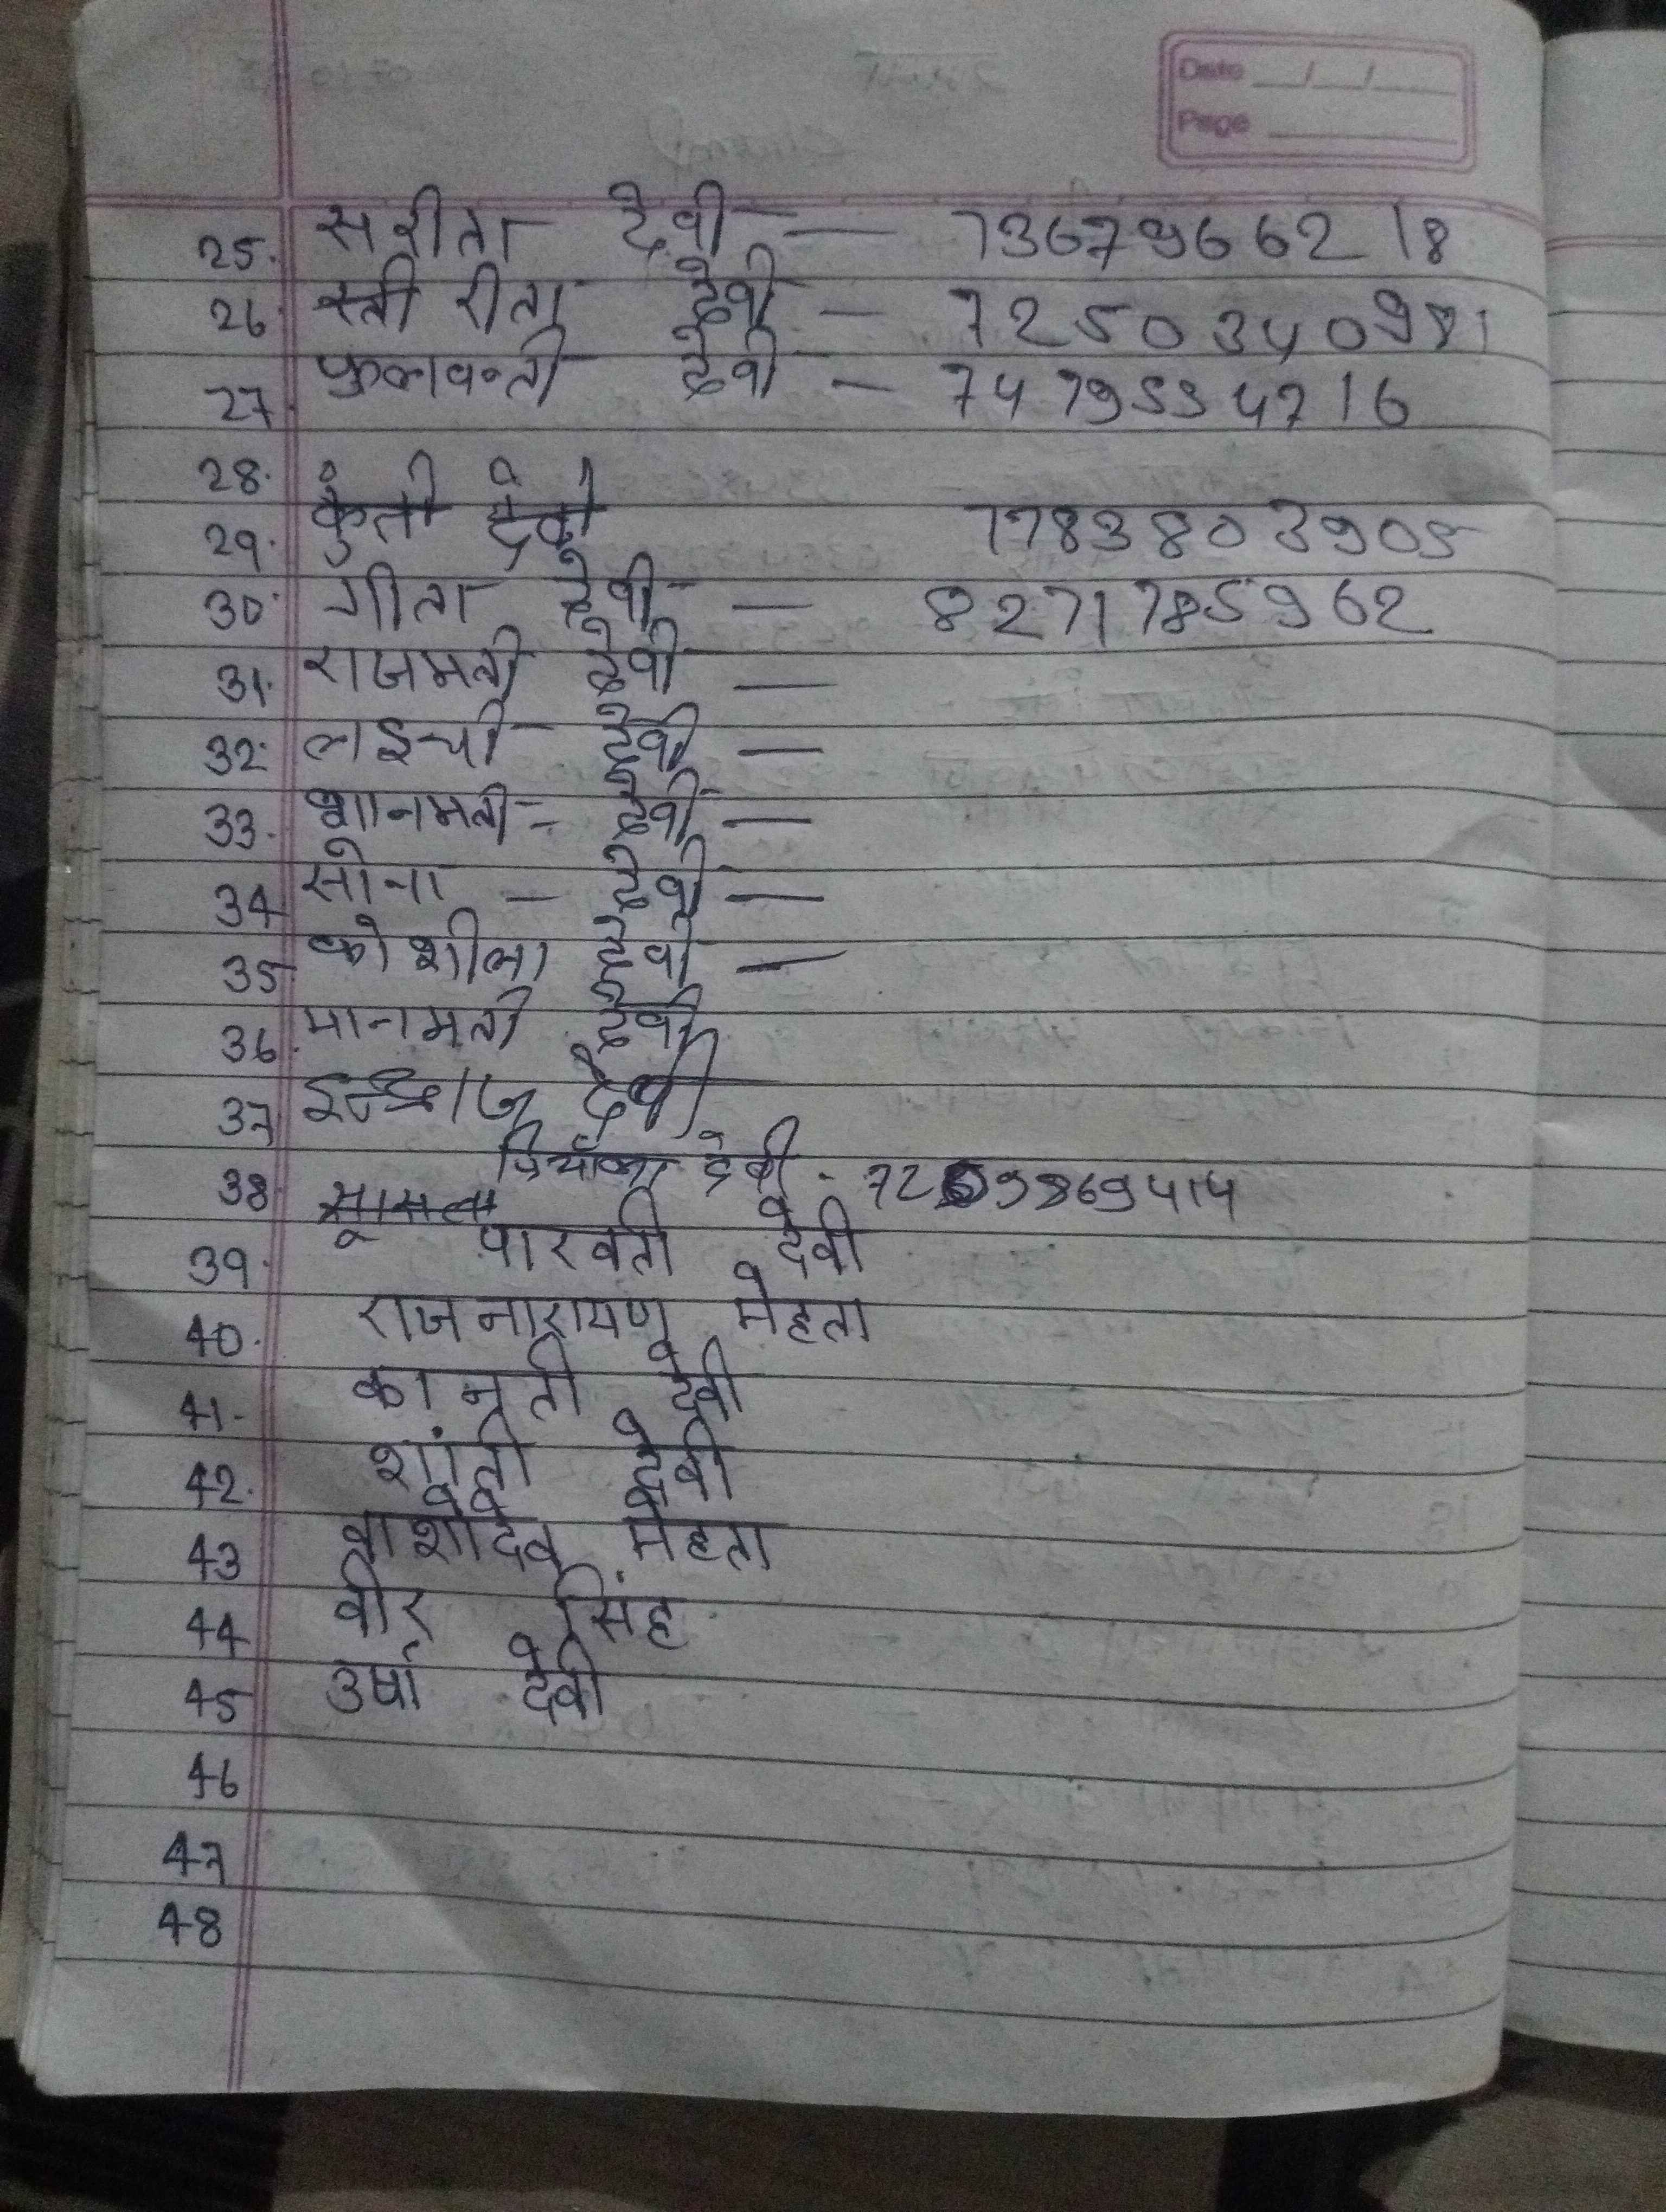 Date __/__/__
Page
25. सरीता देवी — 7367966218
26. स्ती रीता देवी — 7250340981
27. फुलवन्ती देवी — 7479534716
28.
29. कुंती देवी 7783803905
30. गीता देवी — 8271785962
31. राजमती देवी —
32. लइची देवी —
33. शानमती - देवी —
34 सोना — देवी —
35 कोशीला देवी —
36. मानमती देवी
37 देवी
38. प्रियंका देवी - 9869414
39. पारवती देवी
40. राजनारायण मेहता
41. कानती देवी
42. शांती देवी
43 वाशोदेव मेहता
44 वीर सिंह
45 उर्षा देवी
46
47
48